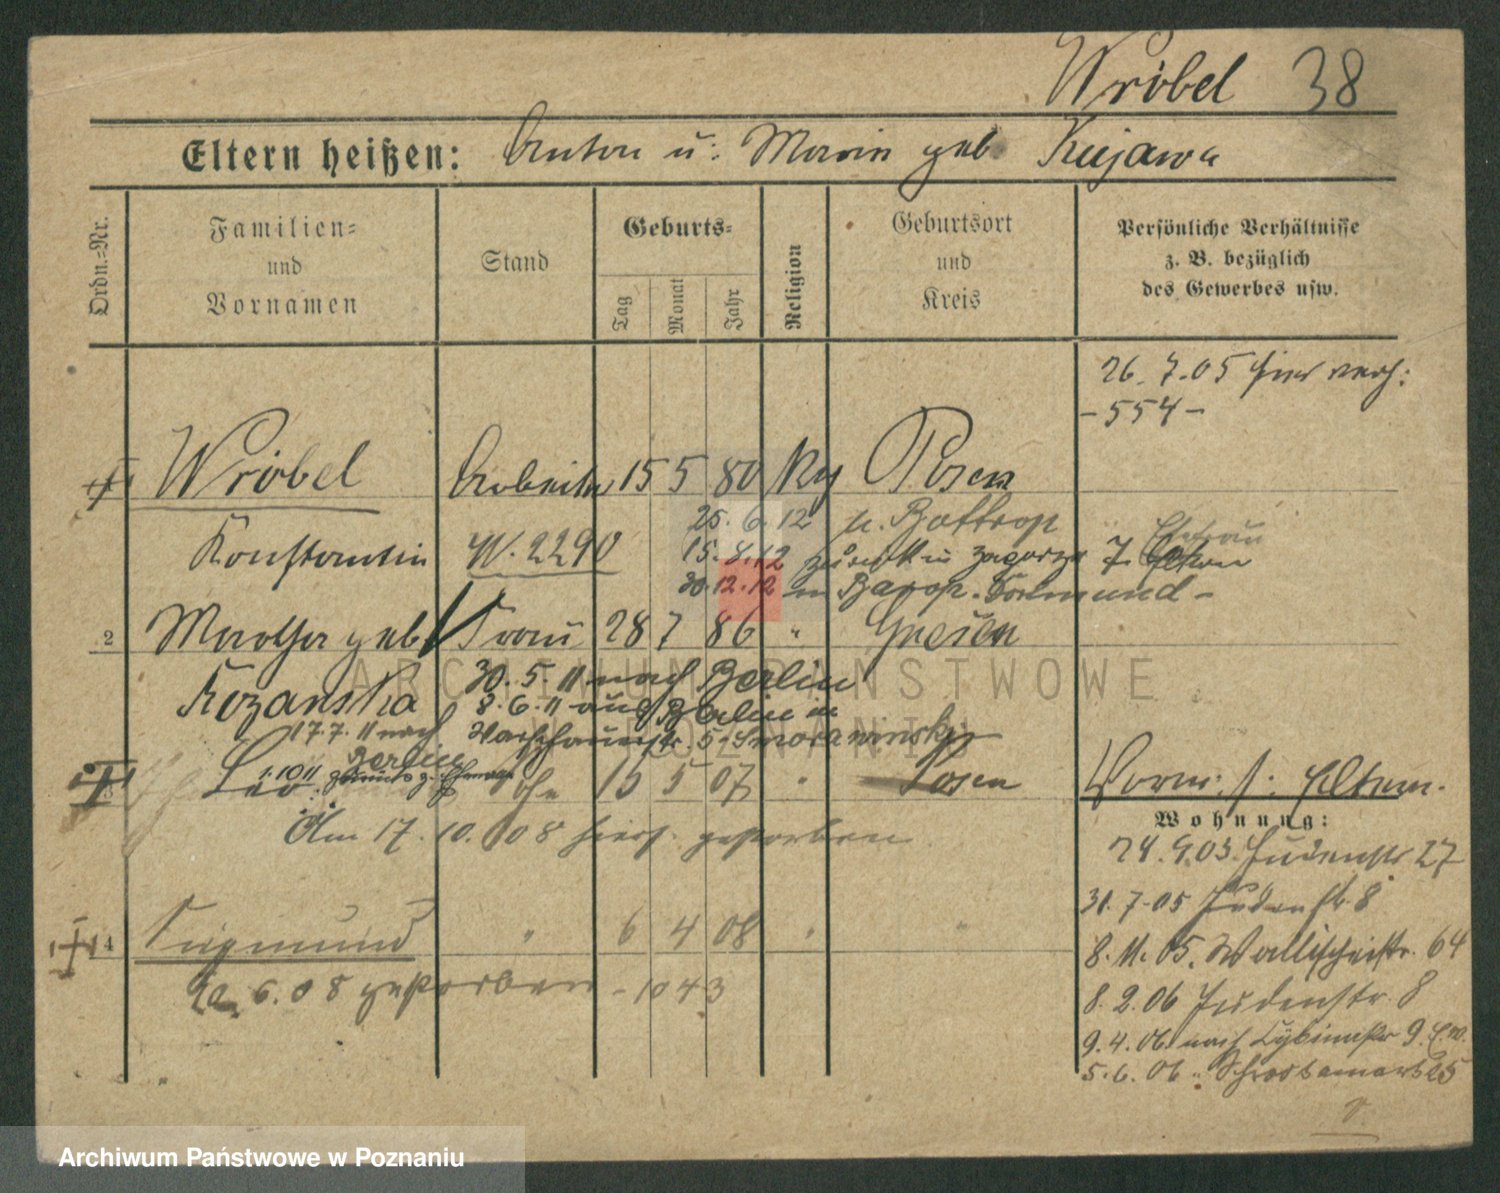 Wróbel 38
Eltern heißen: Anton u. Marie geb Kujawa
Ordn.-Nr.
Familien-
und
Vornamen
Stand
Geburts-
Tag
Monat
Jahr
Religion
Geburtsort
und
Kreis
Persönliche Verhältnisse
z. B. bezüglich
des Gewerbes usw.
26. 7. 05 hier verh:
- 554 -
Wróbel Arbeiter 15 5 80 Posen
25. 6. 12 n. Bottrop
Konstantin W. 2290 15. 8. 12 zurück Ehefrau
30. 12. 12 n Barop. Dortmund -
2 Martha geb Frau 28 7 86 " Gnesen
Kozanska 30. 5. 11 nach Berlin
8. 6. 11 aus Berlin
17. 7. 11 nach Warschauerstr. 5
Berlin
Leo 1. 10 11 15 5 07 " Posen Vorm. s. Eltern.
Am 17. 10. 08 hier gestorben
Wohnung:
24. 9. 03 Judenstr 27
31. 7. 05 Judenstr. 8
4 Sigmund " 6 4 08 " "
8. 11. 05. Wallischeistr. 64
20. 6. 08 gestorben - 1043
8. 2. 06 Judenstr. 8
9. 4. 06 nach Cybinastr 9
5. 6. 06 " 25
ARCHIWUM PAŃSTWOWE
W POZNANIU
Archiwum Państwowe w Poznaniu